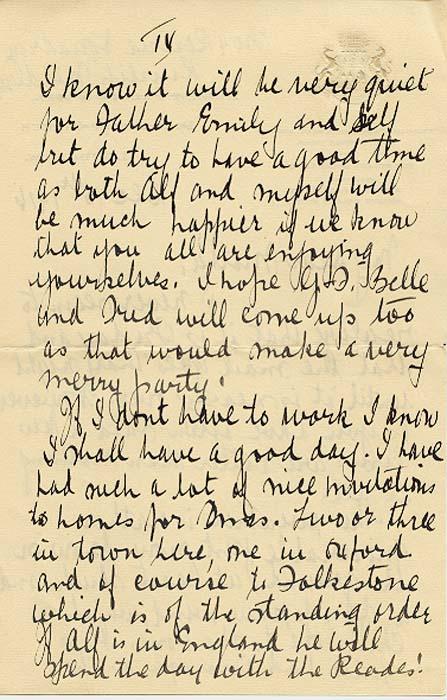 IV
I know it will be very quiet
for Father Emily and self
but do try to have a good time
as both Alf and myself will
be much happier if we know
that you all are enjoying
yourselves. I hope G.F. Belle
and Fred will come up too
as that would make a very
merry party.
If I dont have to work I know
I shall have a good day. I have
had such a lot of nice invitations
to homes for Xmas. Two or three
in town here, one in Oxford
and of course to Folkestone
which is of the standing order
If Alf is in England he will
spend the day with the Reades!